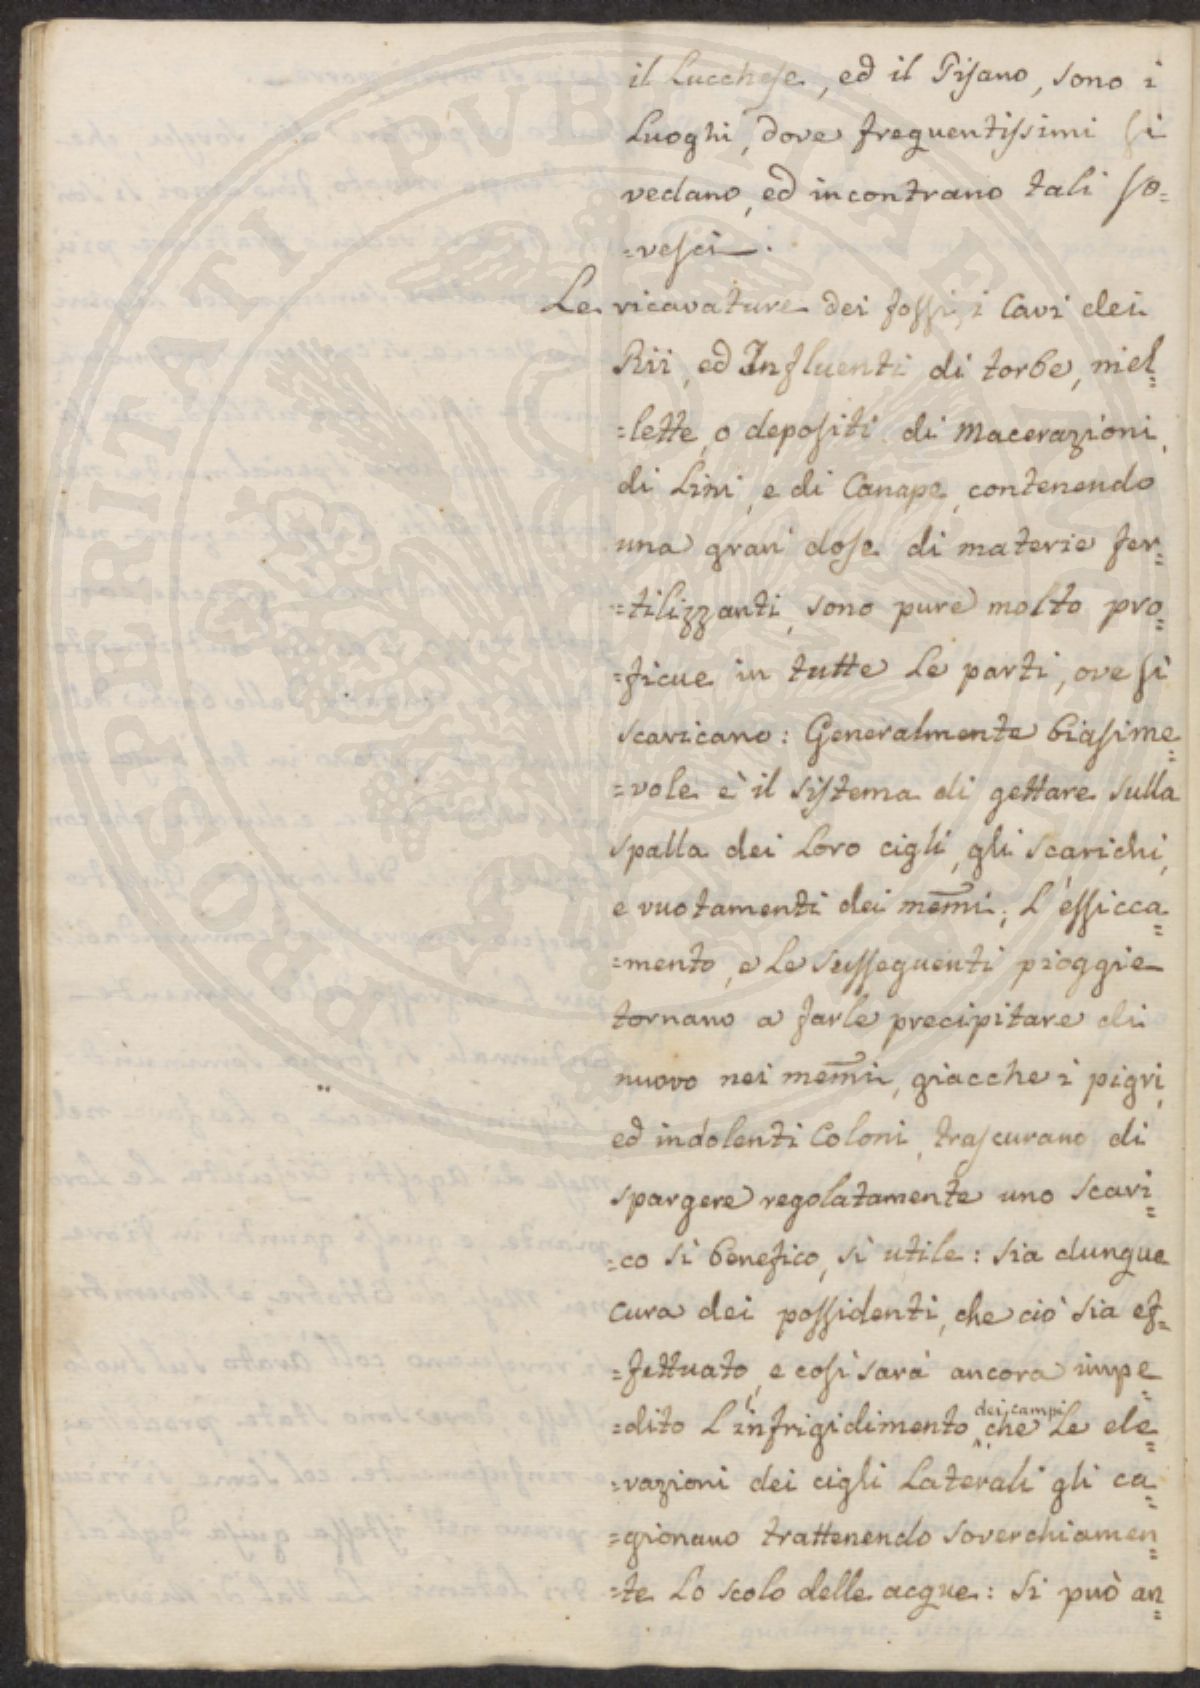 il Lucchese, ed il Pisano, sono i
Luoghi, dove frequentissimi si
vedano, ed incontrano tali so=
=vesci.
Le ricavature dei fossi, i Cavi dei
Rii, ed Influenti di torbe, miel=
=lette, o depositi di Macerazioni,
di Lini, e di Canape, contenendo
una gran dose di materie fer=
=tilizzanti, sono pure molto pro=
=ficue in tutte Le parti, ove si
scaricano: Generalmente biasime=
=vole è il sistema di gettare sulla
spalla dei Loro cigli, gli scarichi,
e vuotamenti dei mem̃i; L'essicca=
=mento, e Le susseguenti pioggie
tornano a farle precipitare di
nuovo nei mem̃i, giacche i pigri,
ed indolenti Coloni, trascurano di
spargere regolatamente uno scari=
=co sì benefico, sì utile: sia dunque
cura dei possidenti, che ciò sia ef=
=fettuato, e così sarà ancora impe=
=dito L'infrigidimento dei campi che Le ele=
=vazioni dei cigli Laterali gli ca=
=gionano trattenendo soverchiamen=
=te Lo scolo delle acque: Si può an=
PROSPERITATI PUBLICAE